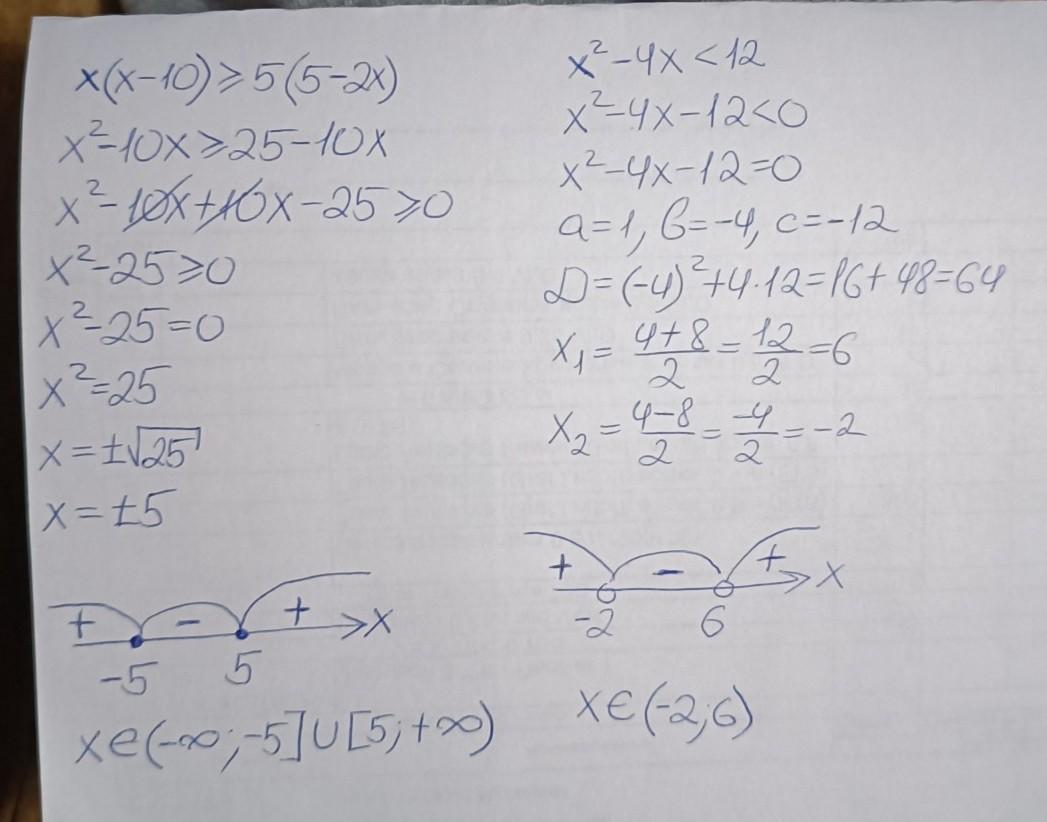 x(x-10)≥5(5-2x)
x²-10x≥25-10x
x²-10x+10x-25≥0
x²-25≥0
x²-25=0
x²=25
x=±√25
x=±5
+ - + x
-5 5
x∈(-∞;-5]∪[5;+∞)
x²-4x<12
x²-4x-12<0
x²-4x-12=0
a=1, b=-4, c=-12
D=(-4)²+4·12=16+48=64
x₁=(4+8)/2=12/2=6
x₂=(4-8)/2=-4/2=-2
+ - + x
-2 6
x∈(-2;6)